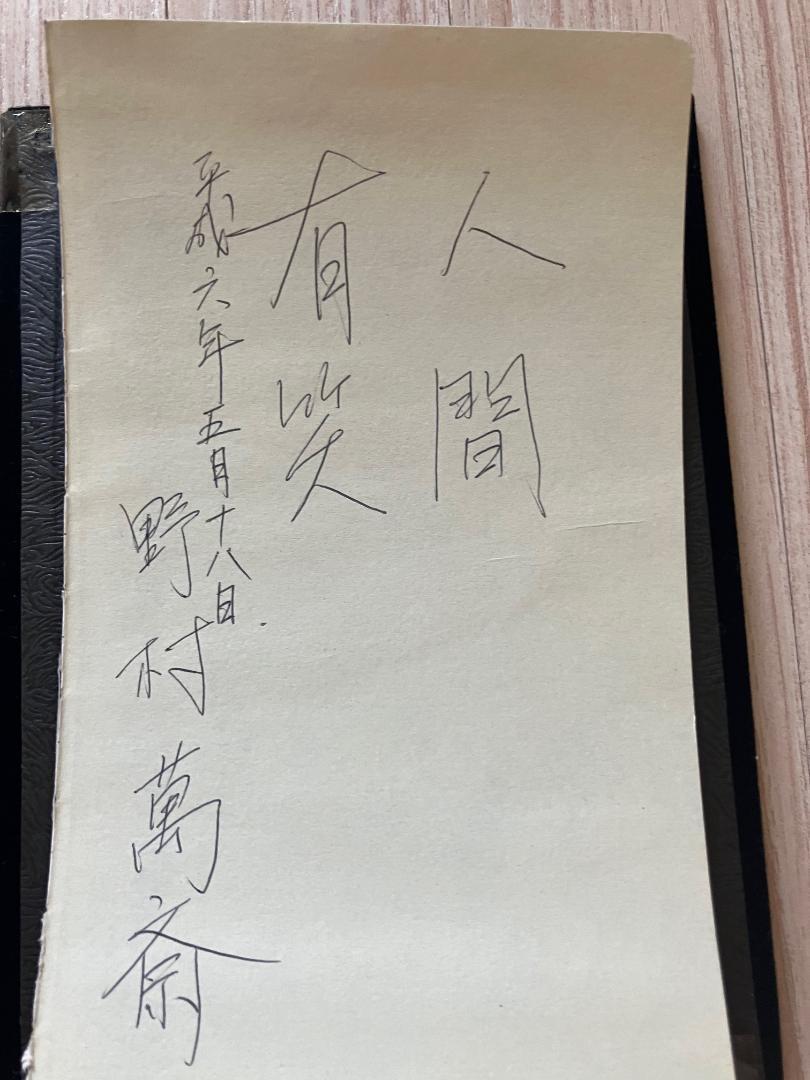 人間
有笑
平成六年五月十八日.
野村萬斎